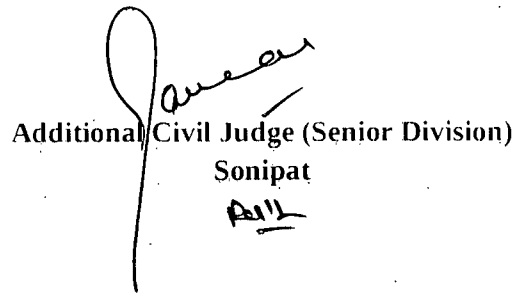 Additional Civil Judge (Senior Division)
Sonipat